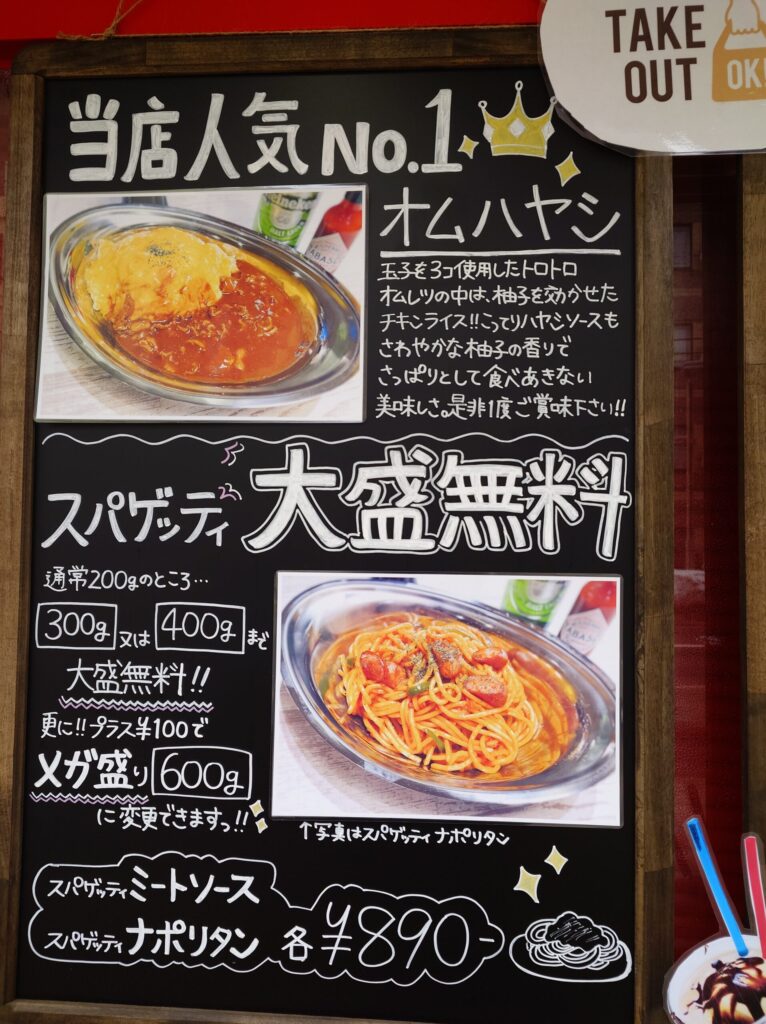 TAKE
OUT
OK!
当店人気No.1
オムハヤシ
玉子を3コ使用したトロトロ
オムレツの中は、柚子を効かせた
チキンライス!!こってりハヤシソースも
さわやかな柚子の香りで
さっぱりとして食べあきない
美味しさ。是非1度ご賞味下さい!!
Heineken
スパゲッティ 大盛無料
通常200gのところ…
300g 又は 400g まで
大盛無料!!
更に!!プラス¥100で
メガ盛り 600g
に変更できますっ!!
↑写真はスパゲッティナポリタン
スパゲッティ ミートソース
スパゲッティ ナポリタン
各 ¥890-